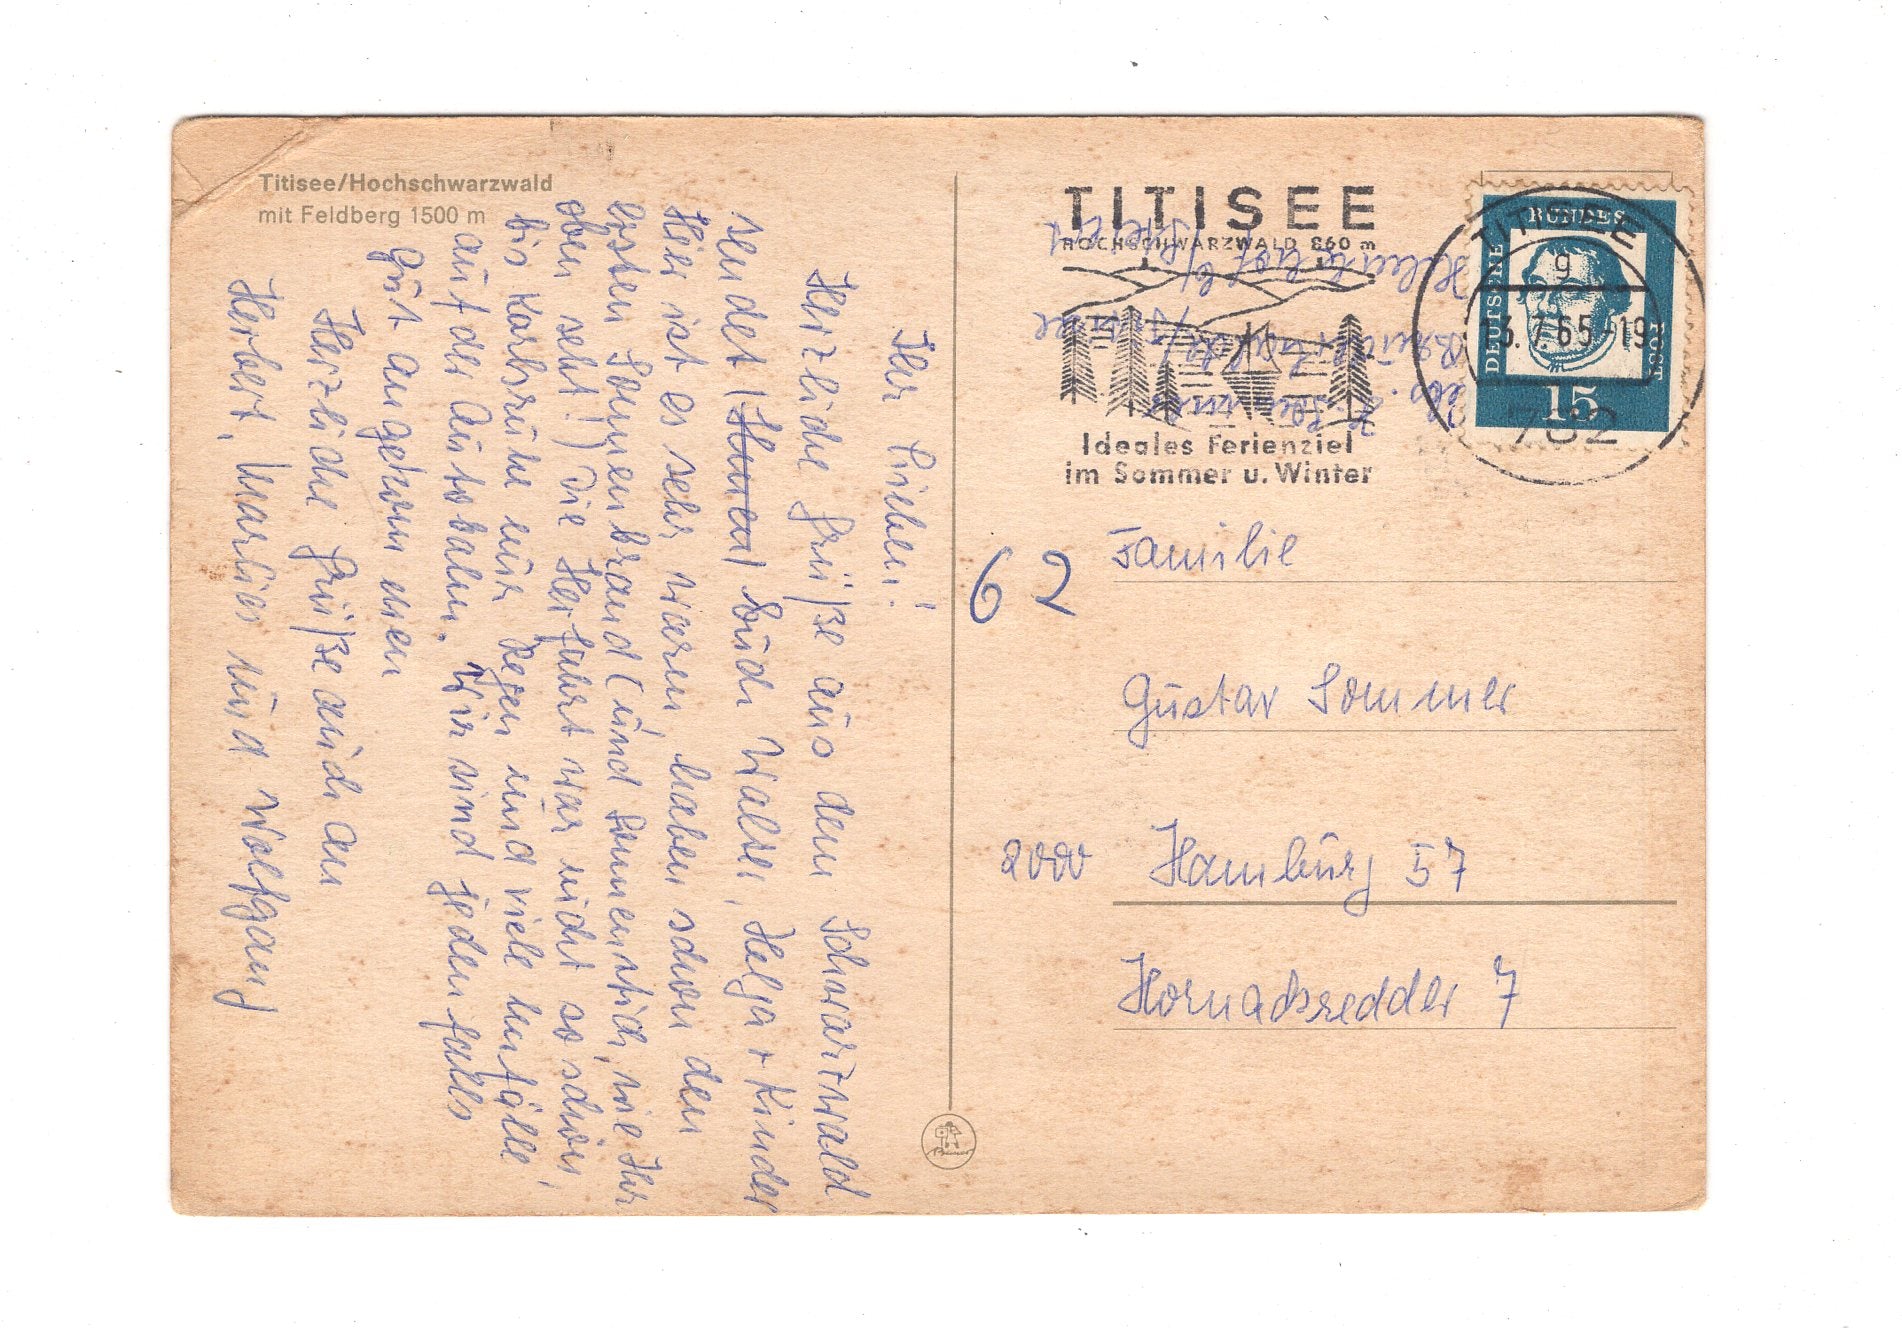 Titisee/Hochschwarzwald
mit Feldberg 1500 m
Ihr Lieben!
Herzliche Grüße aus dem Schwarzwald
sendet (Ihnen) Euch Walter, Helga + Kinder
Hier ist es sehr warm, haben schon den
ersten Sonnenbrand (und Sonnenstich, wie Ihr
oben seht!) Die Herfahrt war nicht so schön,
bis Karlsruhe nur Regen und viele Unfälle
auf der Autobahn. Wir sind jedenfalls
gut angekommen
Herzliche Grüße auch an
Herbert, Marlies und Wolfgang
TITISEE
HOCHSCHWARZWALD 860 m
Ideales Ferienziel
im Sommer u. Winter
TITISEE
g
13.7.65-19
782
DEUTSCHE
BUNDES
POST
15
62
Familie
Gustav Sommer
2000 Hamburg 57
Hornackredder 7